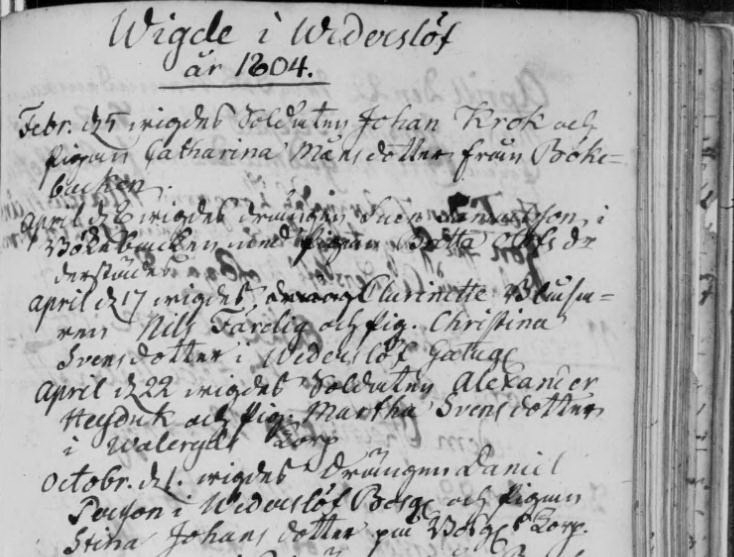 Wigde i Wederslöf
år 1804.
Febr. d. 5 wigdes Soldaten Johan Krok och
Pigan Catharina Månsdotter från Böke=
backen.
April d. 6 wigdes drängen Sven i
Bökebacken med Pigan Britta Olofsdr
derstädes
April d. 17 wigdes Clarinette Blåsa=
ren Nils Färdig och Pig. Christina
Svensdotter i Wederslöf
April d. 22 wigdes Soldaten Alexander
Heyduk och Pig. Martha Svensdotter
i Torp
Octobr. d. 1. wigdes Drängen Daniel
i Wederslöf och Pigan
Stina Johansdotter på Torp.